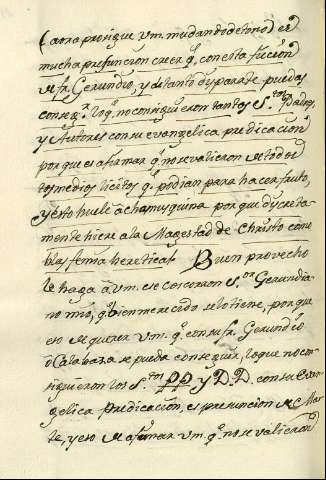 Cavra prosigue Vm. mudando de tono: Es
mucha presuncion creer q.e con esta ficcion
de fr. Gerundio, y de tanto disparate puedas
conseg.r lo q.e no consiguieron tantos S.tos Padres,
y Autores con su evangelica predicacion
porque es afirmar q.e no se valieron de todos
los medios licitos q.e podian para hacer fruto,
y esto huele à chamusquina porque discreta-
mente hiere a la Magestad de Christo como
blasfemia heretica. Buen provecho
le haga à Vm. ese coscorron S.or Gerundia-
no mio, q.e bien merecido se lo tiene, porque
eso de querer Vm. q.e con su fr. Gerundio
ò Calabaza se pueda conseguir, lo que no con-
siguieron los S.tos PP. y D.D. con su Evan-
gelica Predicacion, es presuncion de Mar-
te, y eso de afirmar Vm. q.e no se valieron